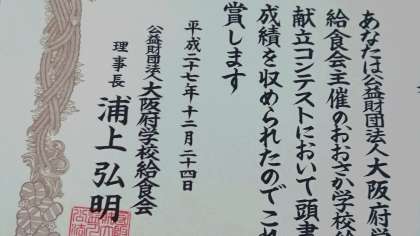 あなたは公益財団法人大阪府学
給食会主催のおおさか学校給
献立コンテストにおいて頭書
成績を収められたのでこれ
賞します
平成二十七年十二月二十四日
公益財団法人大阪府学校給食会
理事長 浦上弘明